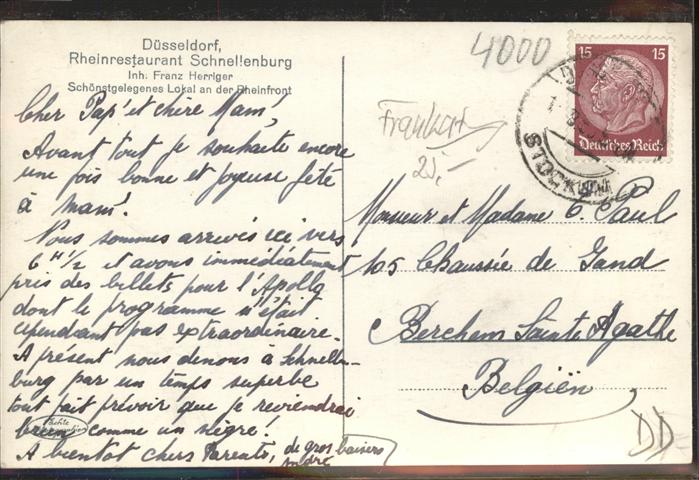 Düsseldorf,
Rheinrestaurant Schnellenburg
Inh. Franz Herriger
Schönstgelegenes Lokal an der Rheinfront
Cher Pap' et chère Mam',
Avant tout je souhaite encore
une fois bonne et joyeuse fête
à Mam'.
Nous sommes arrivés ici vers
6 H 1/2 et avons immédiatement
pris des billets pour l'Apollo
dont le programme n'était
cependant pas extraordinaire.
A présent nous dinons à Schnellen-
burg par un temps superbe
tout fait prévoir que je reviendrai
comme un nègre!
A bientot chers Parents, de gros baisers
André
4000
Frankert
25,-
15 15
Deutsches Reich
STOCKUM
Monsieur et Madame C. Paul
105 Chaussée de Gand
Berchem Sainte Agathe
Belgiën
DD